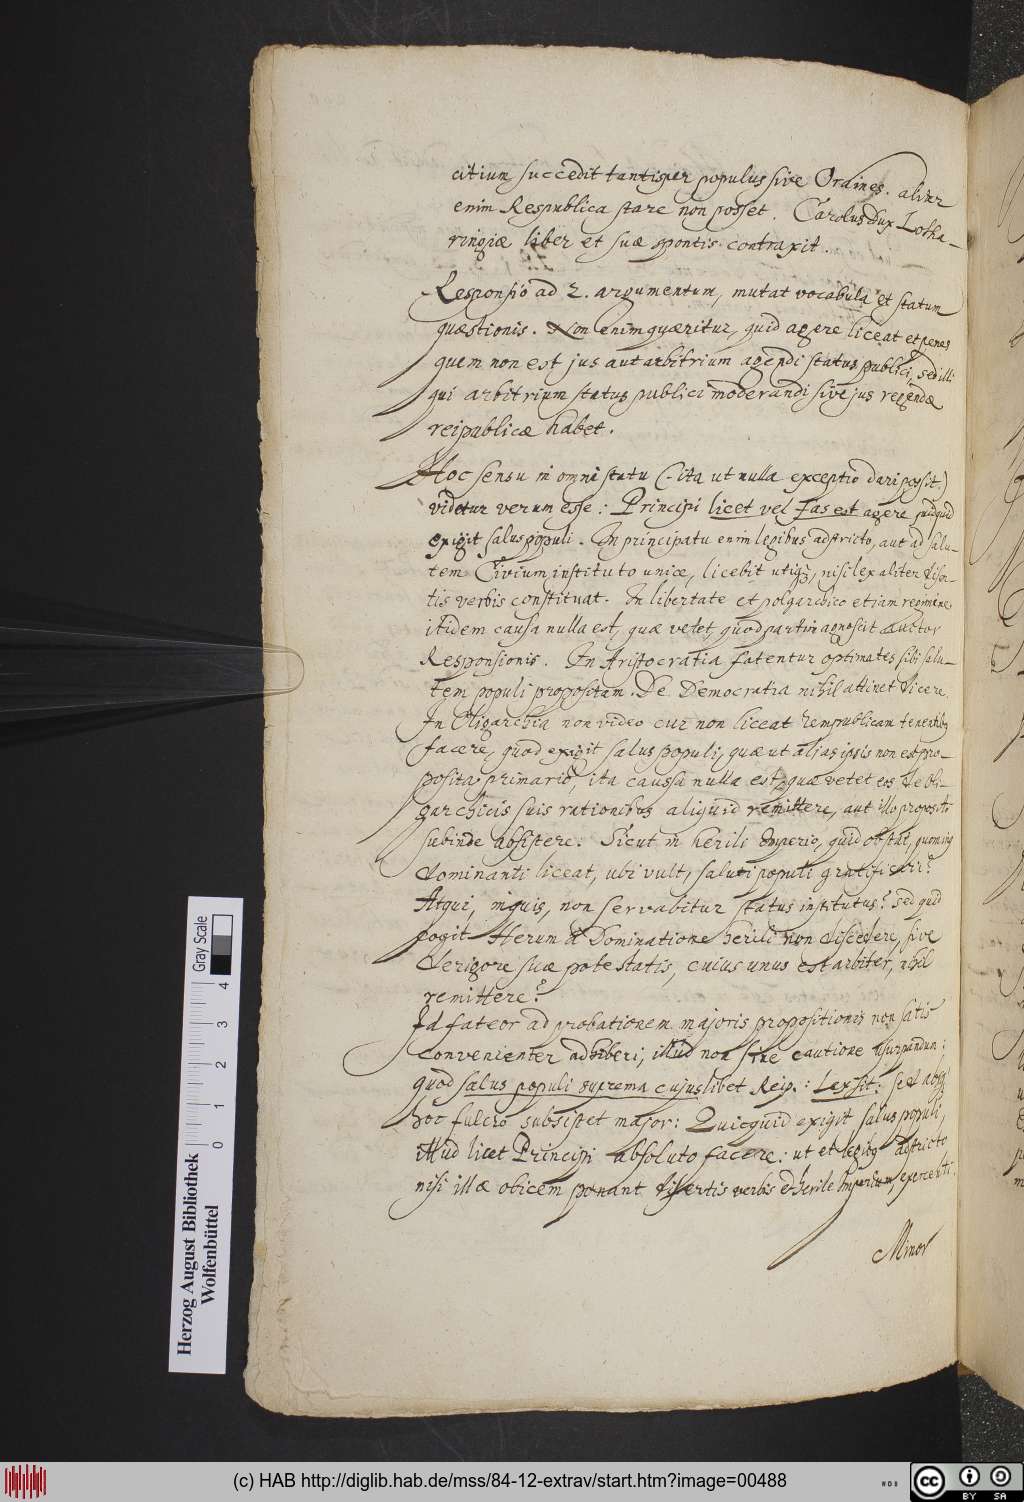 citium succedit tantisper populus sive Ordines. aliter
enim Respublica stare non posset. Carolus Dux Lotha-
ringiæ liber et suæ spontis contraxit.
Responsio ad 2. argumentum, mutat vocabula et statum
quæstionis. Non enim quæritur, quid agere liceat et penes
quem non est jus aut arbitrium agendi status publici, sed illi
qui arbitrium status publici moderandi sive jus regendæ
reipublicæ habet.
Hoc sensu in omni statu (ita ut nulla exceptio dari possit)
videtur verum esse: Principi licet vel fas est agere quicquid
exigit salus populi. In principatu enim legibus adstricto, aut ad salu-
tem Civium instituto unicæ, licebit utiq3, nisi lex aliter diser-
tis verbis constituat. In libertate et polyarchico etiam regimine
itidem causa nulla est, quæ vetet, quod partim agnoscit Auctor
Responsionis. In Aristocratia fatentur optimates sibi salu-
tem populi propositam. De Democratia nihil attinet dicere.
In Oligarchia non video cur non liceat rempublicam tenentibus
facere, quod exigit salus populi, quæ ut alias ipsis non est pro-
posita primario, ita caussa nulla est, quæ vetet eos de oli-
garchicis suis rationibus aliquid remittere, aut illo proposito
subinde absistere. Sicut in herili Imperio, quid obstat, quominus
dominanti liceat, ubi vult, saluti populi gratificari?
Atqui, inquis, non servabitur status institutus? sed quid
cogit Herum a Dominatione herili non discedere, sive
de rigore suæ potestatis, cuius unus est arbiter, nihil
remittere?
Id fateor ad probationem majoris propositionis non satis
convenienter adhiberi; illud non sine cautione usurpandum:
quod salus populi suprema cujuslibet Reip.: Lex sit: sed absq3
hoc fulcro subsistet major: Quicquid exigit salus populi,
illud licet Principi absoluto facere: ut et legibus adstricto
nisi illæ obicem ponant disertis verbis & herile Imperium exercenti.
Minor
Herzog August Bibliothek
Wolfenbüttel
0 1 2 3 4
Gray Scale
(c) HAB http://diglib.hab.de/mss/84-12-extrav/start.htm?image=00488
WDB
cc BY SA